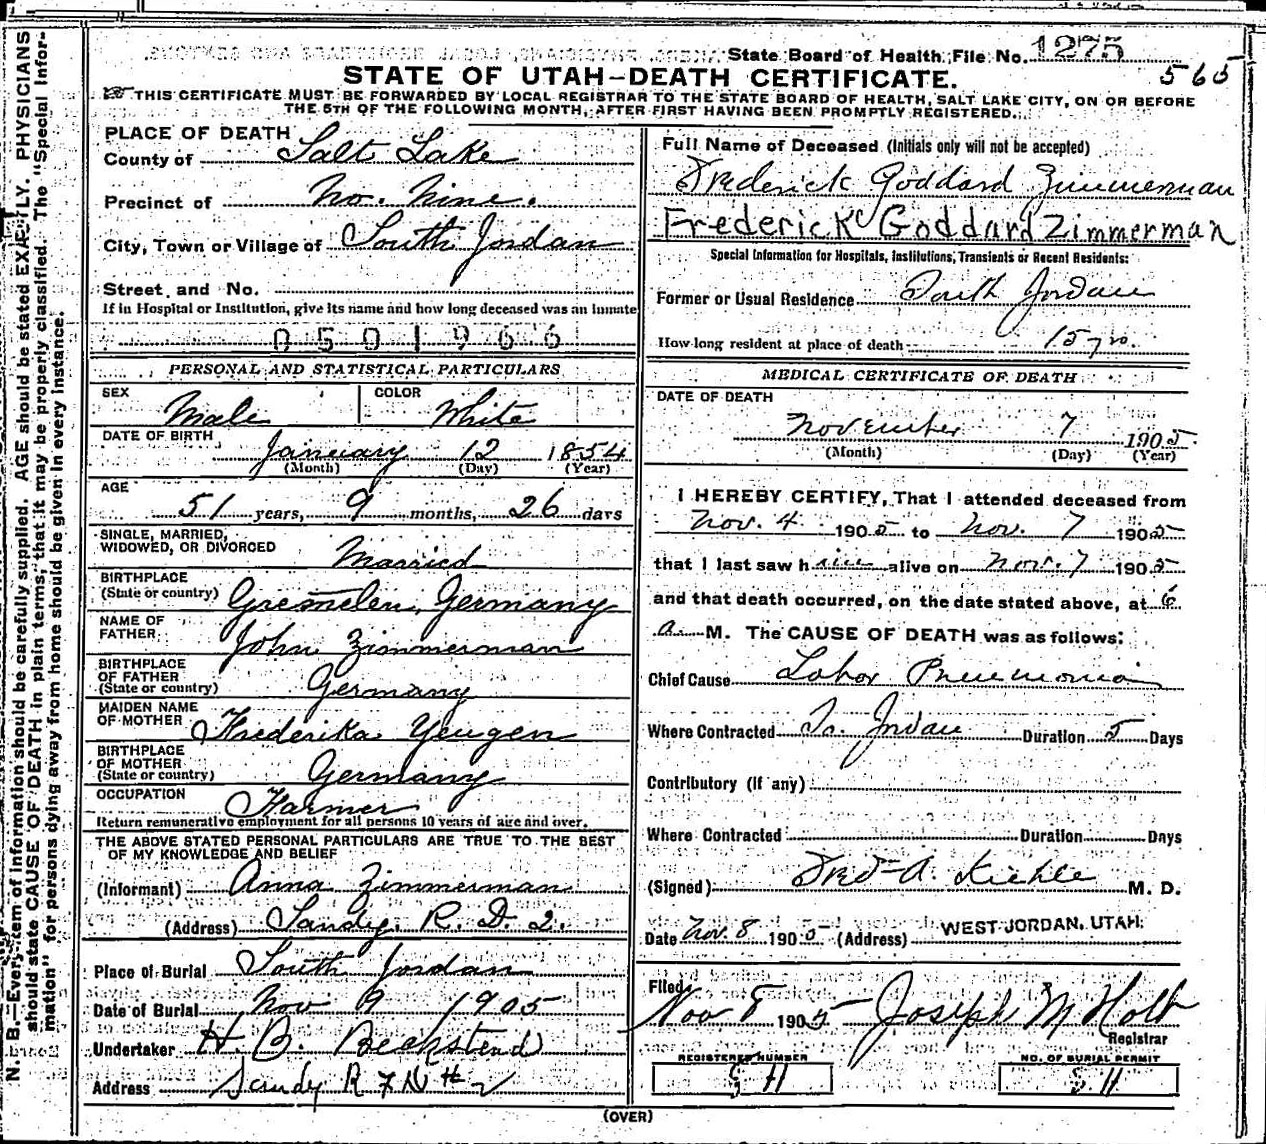 State Board of Health File No. 1275
565
STATE OF UTAH—DEATH CERTIFICATE.
THIS CERTIFICATE MUST BE FORWARDED BY LOCAL REGISTRAR TO THE STATE BOARD OF HEALTH, SALT LAKE CITY, ON OR BEFORE
THE 5TH OF THE FOLLOWING MONTH, AFTER FIRST HAVING BEEN PROMPTLY REGISTERED.
N. B.—Every item of information should be carefully supplied. AGE should be stated EXACTLY. PHYSICIANS
should state CAUSE OF DEATH in plain terms, that it may be properly classified. The "Special Infor-
mation" for persons dying away from home should be given in every instance.
PLACE OF DEATH
County of Salt Lake
Precinct of No. Nine.
City, Town or Village of South Jordan
Street, and No.
If in Hospital or Institution, give its name and how long deceased was an inmate
0501966
PERSONAL AND STATISTICAL PARTICULARS
SEX Male COLOR White
DATE OF BIRTH January 12 1854
(Month) (Day) (Year)
AGE 51 years, 9 months, 26 days
SINGLE, MARRIED,
WIDOWED, OR DIVORCED Married
BIRTHPLACE
(State or country) Gremelen, Germany
NAME OF
FATHER John Zimmerman
BIRTHPLACE
OF FATHER
(State or country) Germany
MAIDEN NAME
OF MOTHER Frederika Yeugen
BIRTHPLACE
OF MOTHER
(State or country) Germany
OCCUPATION Farmer
Return remunerative employment for all persons 10 years of age and over.
THE ABOVE STATED PERSONAL PARTICULARS ARE TRUE TO THE BEST
OF MY KNOWLEDGE AND BELIEF
(Informant) Anna Zimmerman
(Address) Sandy R. D. 2.
Place of Burial South Jordan
Date of Burial Nov 9 1905
Undertaker H. B. Beckstend
Address Sandy R
Full Name of Deceased (Initials only will not be accepted)
Frederick Goddard Zimmerman
Frederick Goddard Zimmerman
Special Information for Hospitals, Institutions, Transients or Recent Residents:
Former or Usual Residence South Jordan
How long resident at place of death 15 yrs.
MEDICAL CERTIFICATE OF DEATH
DATE OF DEATH
November 7 1905
(Month) (Day) (Year)
I HEREBY CERTIFY, That I attended deceased from
Nov. 4 1905 to Nov. 7 1905
that I last saw him alive on Nov. 7 1905
and that death occurred, on the date stated above, at 6
a. M. The CAUSE OF DEATH was as follows:
Chief Cause Lobar Pneumonia
Where Contracted So. Jordan Duration 5 Days
Contributory (if any)
Where Contracted Duration Days
(Signed) Fred A. Kiehle M. D.
Date Nov. 8 1905 (Address) WEST JORDAN, UTAH.
Filed
Nov 8 1905 Joseph M Holt
Registrar
REGISTERED NUMBER
NO. OF BURIAL PERMIT
(OVER)